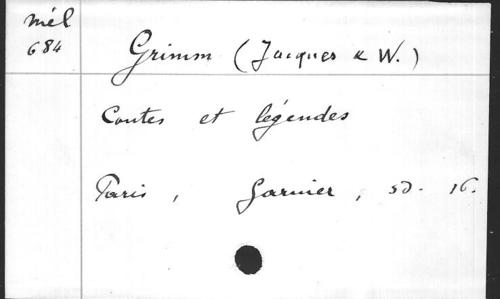 Mél
684
Grimm (Jacques & W.)
Contes et légendes
Paris, Garnier, sd. 16.